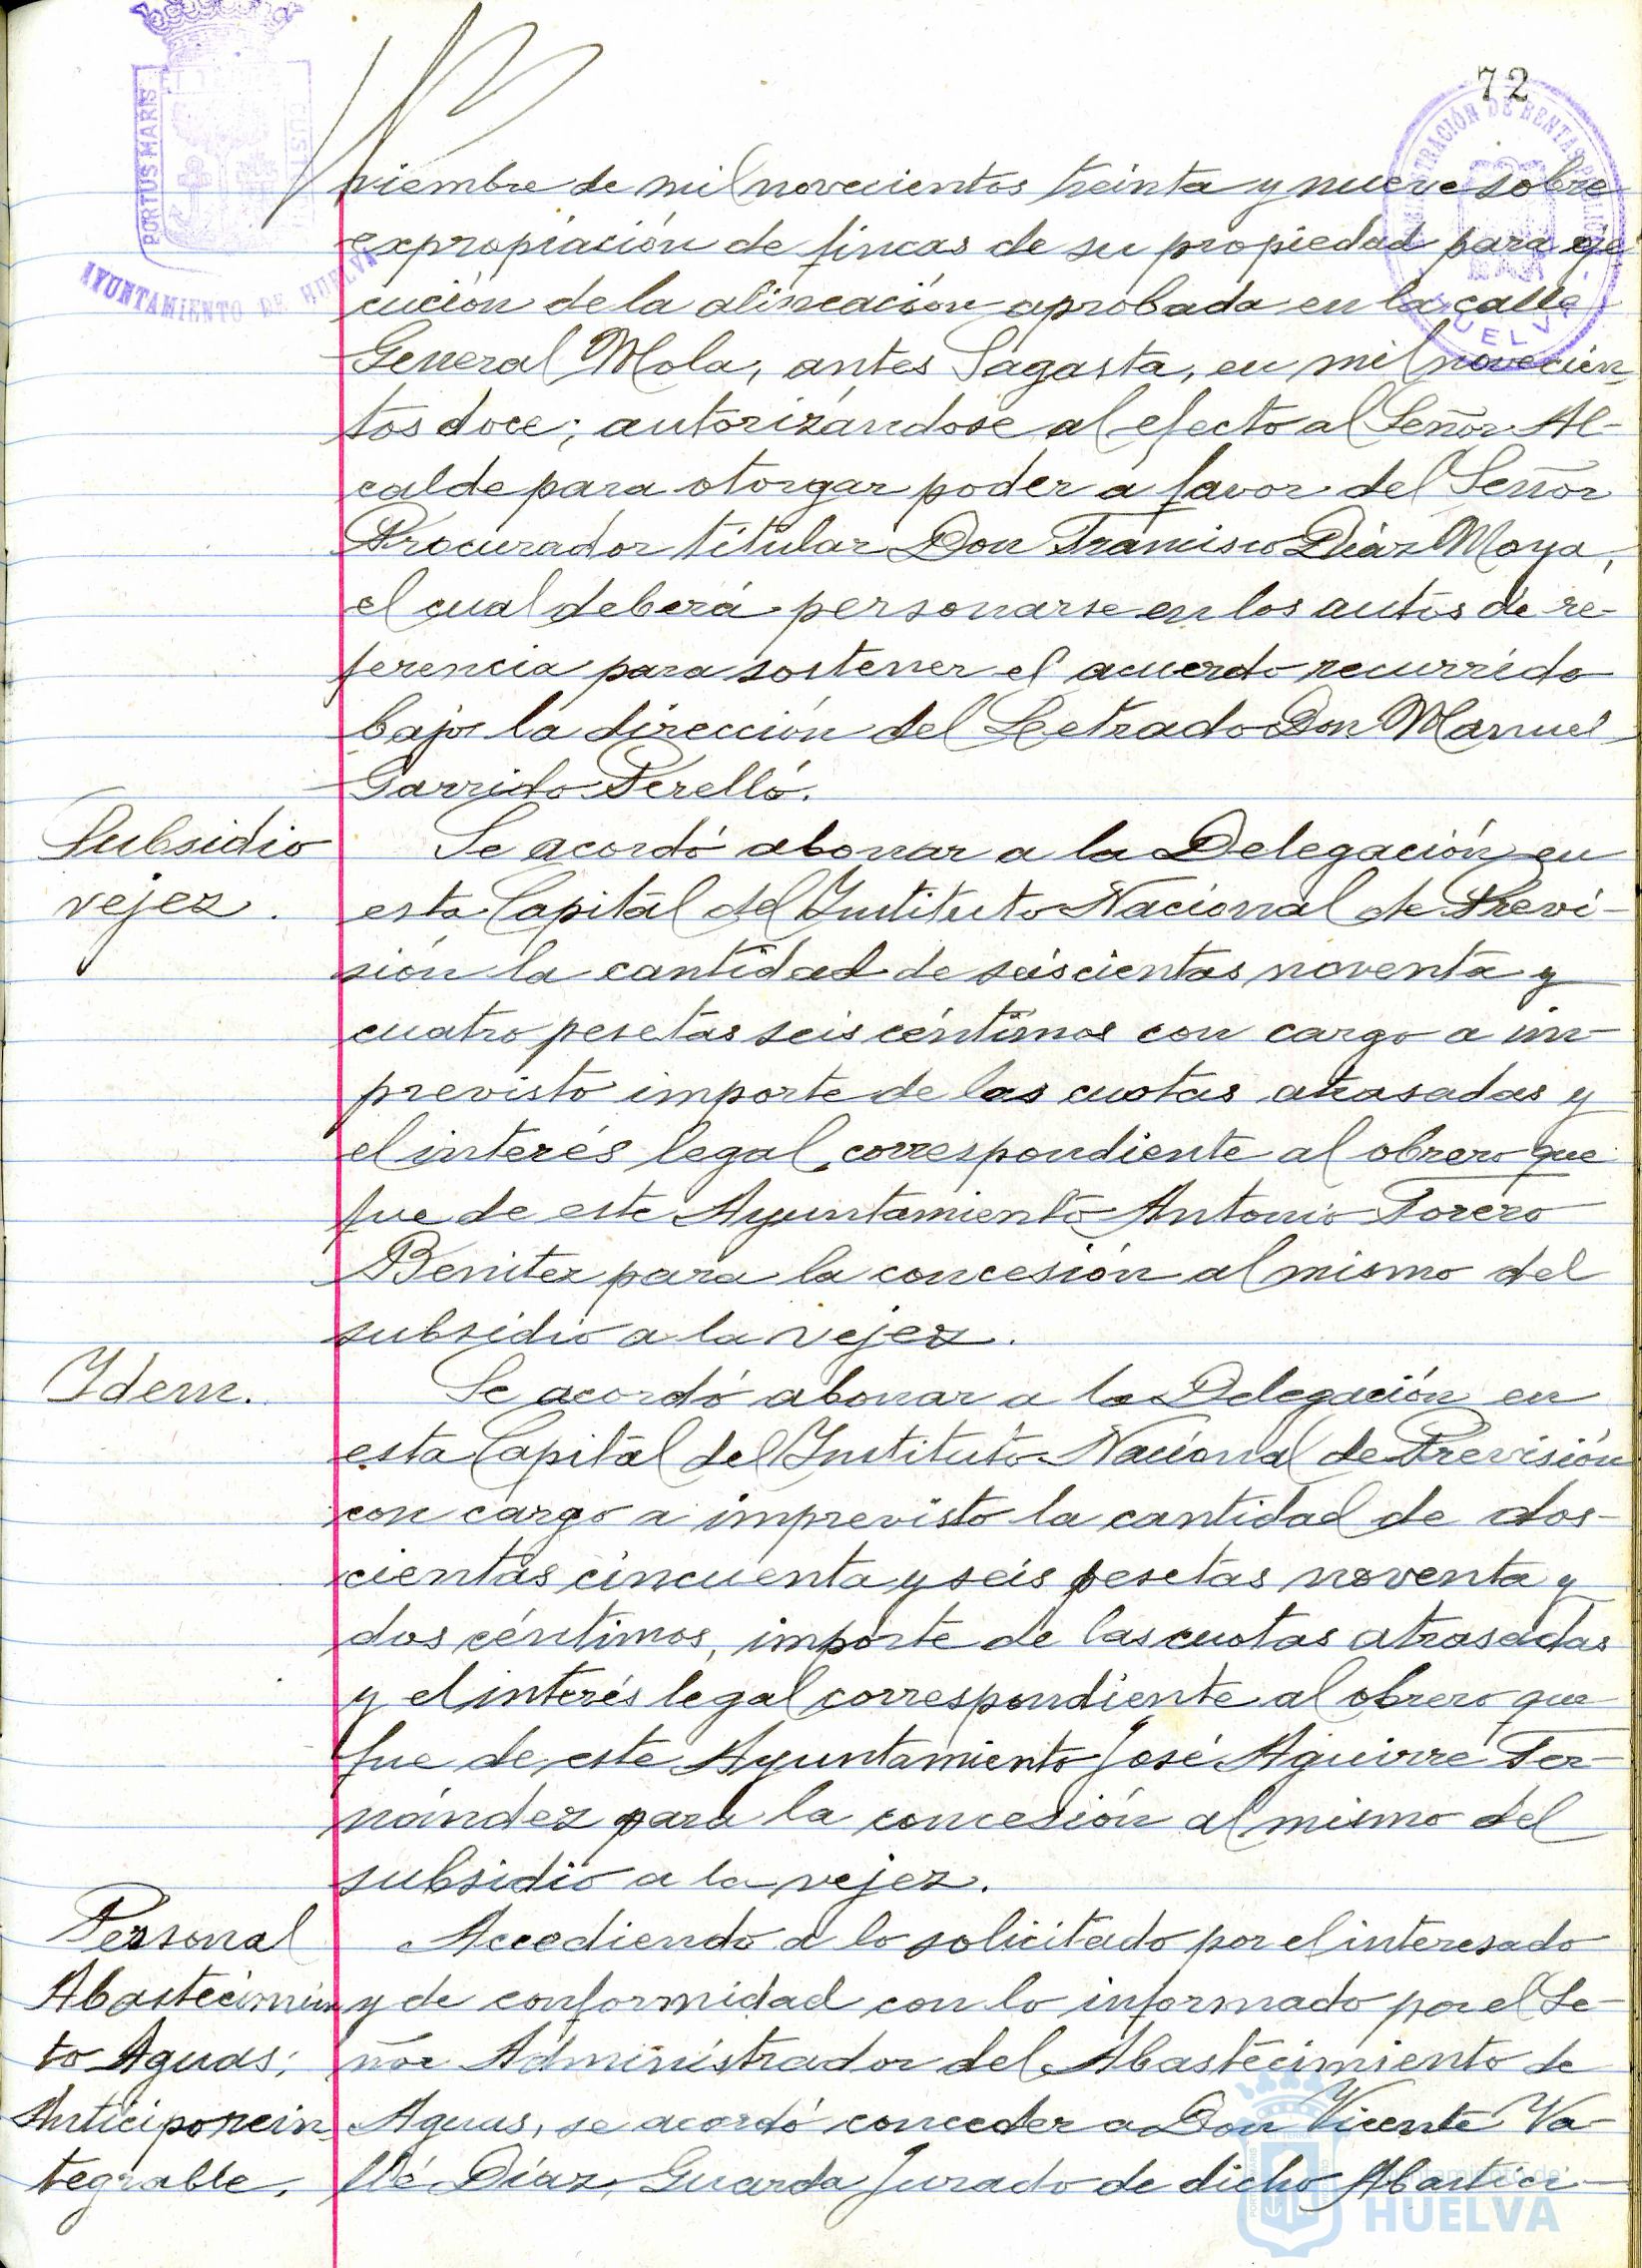 72
PORTUS MARIS
AYUNTAMIENTO DE HUELVA
HUELVA
viembre de mil novecientos treinta y nueve sobre
expropiación de fincas de su propiedad para eje
cución de la alineación aprobada en la calle
General Mola, antes Sagasta, en mil novecien
tos doce; autorizándose al efecto al Señor Al-
calde para otorgar poder a favor del Señor
Procurador titular Don Francisco Díaz Moya,
el cual deberá personarse en los autos de re-
ferencia para sostener el acuerdo recurrido
bajo la dirección del Letrado Don Manuel
Garrido Perelló.
Subsidio
vejez.
Se acordó abonar a la Delegación en
esta Capital del Instituto Nacional de Previ-
sión la cantidad de seiscientas noventa y
cuatro pesetas seis céntimos con cargo a im-
previsto importe de las cuotas atrasadas y
el interés legal correspondiente al obrero que
fue de este Ayuntamiento Antonio Forero
Benitez para la concesión al mismo del
subsidio a la vejez.
Idem.
Se acordó abonar a la Delegación en
esta Capital del Instituto Nacional de Previsión
con cargo a imprevisto la cantidad de dos-
cientas cincuenta y seis pesetas noventa y
dos céntimos, importe de las cuotas atrasadas
y el interés legal correspondiente al obrero que
fue de este Ayuntamiento José Aguirre Fer-
nández para la concesión al mismo del
subsidio a la vejez.
Personal
Abastecimien
to Aguas;
Anticipo rein
tegrable.
Accediendo a lo solicitado por el interesado
y de conformidad con lo informado por el Se-
ñor Administrador del Abastecimiento de
Aguas, se acordó conceder a Don Vicente Va-
llé Díaz, Guarda Jurado de dicho Abasteci-
Ayuntamiento de
HUELVA